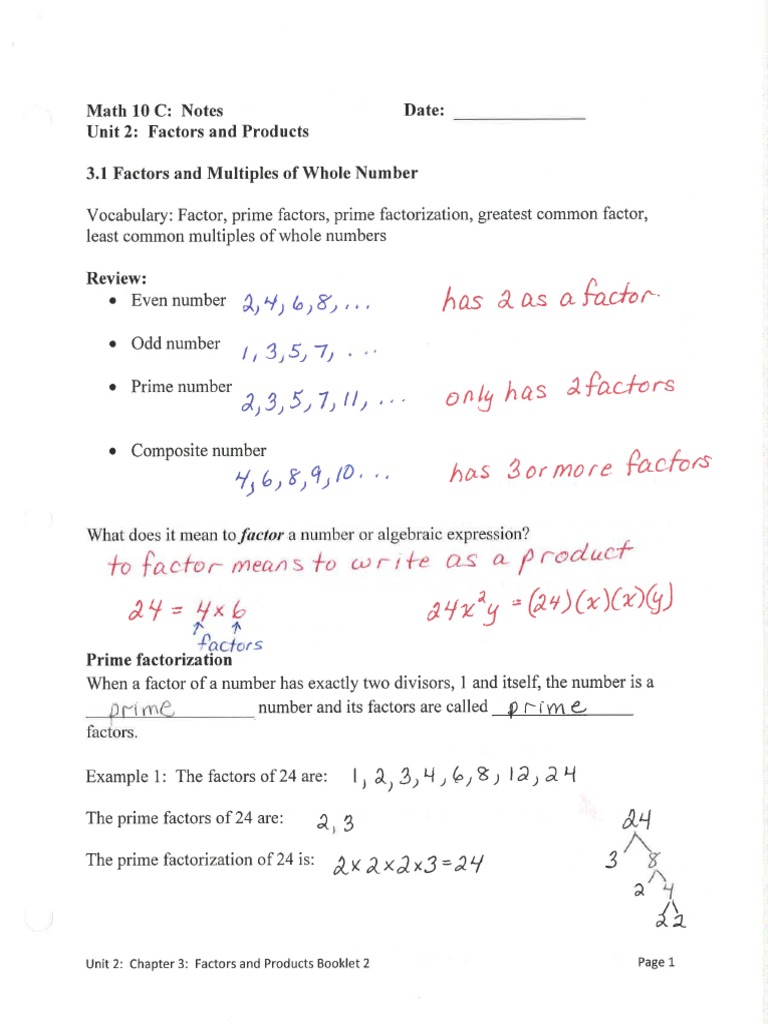 Math 10 C: Notes Date: ____________
Unit 2: Factors and Products
3.1 Factors and Multiples of Whole Number
Vocabulary: Factor, prime factors, prime factorization, greatest common factor,
least common multiples of whole numbers
Review:
• Even number 2,4,6,8,... has 2 as a factor.
• Odd number 1,3,5,7,...
• Prime number 2,3,5,7,11,... only has 2 factors
• Composite number
4,6,8,9,10... has 3 or more factors
What does it mean to factor a number or algebraic expression?
to factor means to write as a product
24 = 4×6 24x²y = (24)(x)(x)(y)
↑ ↑
factors
Prime factorization
When a factor of a number has exactly two divisors, 1 and itself, the number is a
prime number and its factors are called prime
factors.
Example 1: The factors of 24 are: 1,2,3,4,6,8,12,24
The prime factors of 24 are: 2,3 24
The prime factorization of 24 is: 2×2×2×3=24 3 8
2 4
2 2
Unit 2: Chapter 3: Factors and Products Booklet 2 Page 1